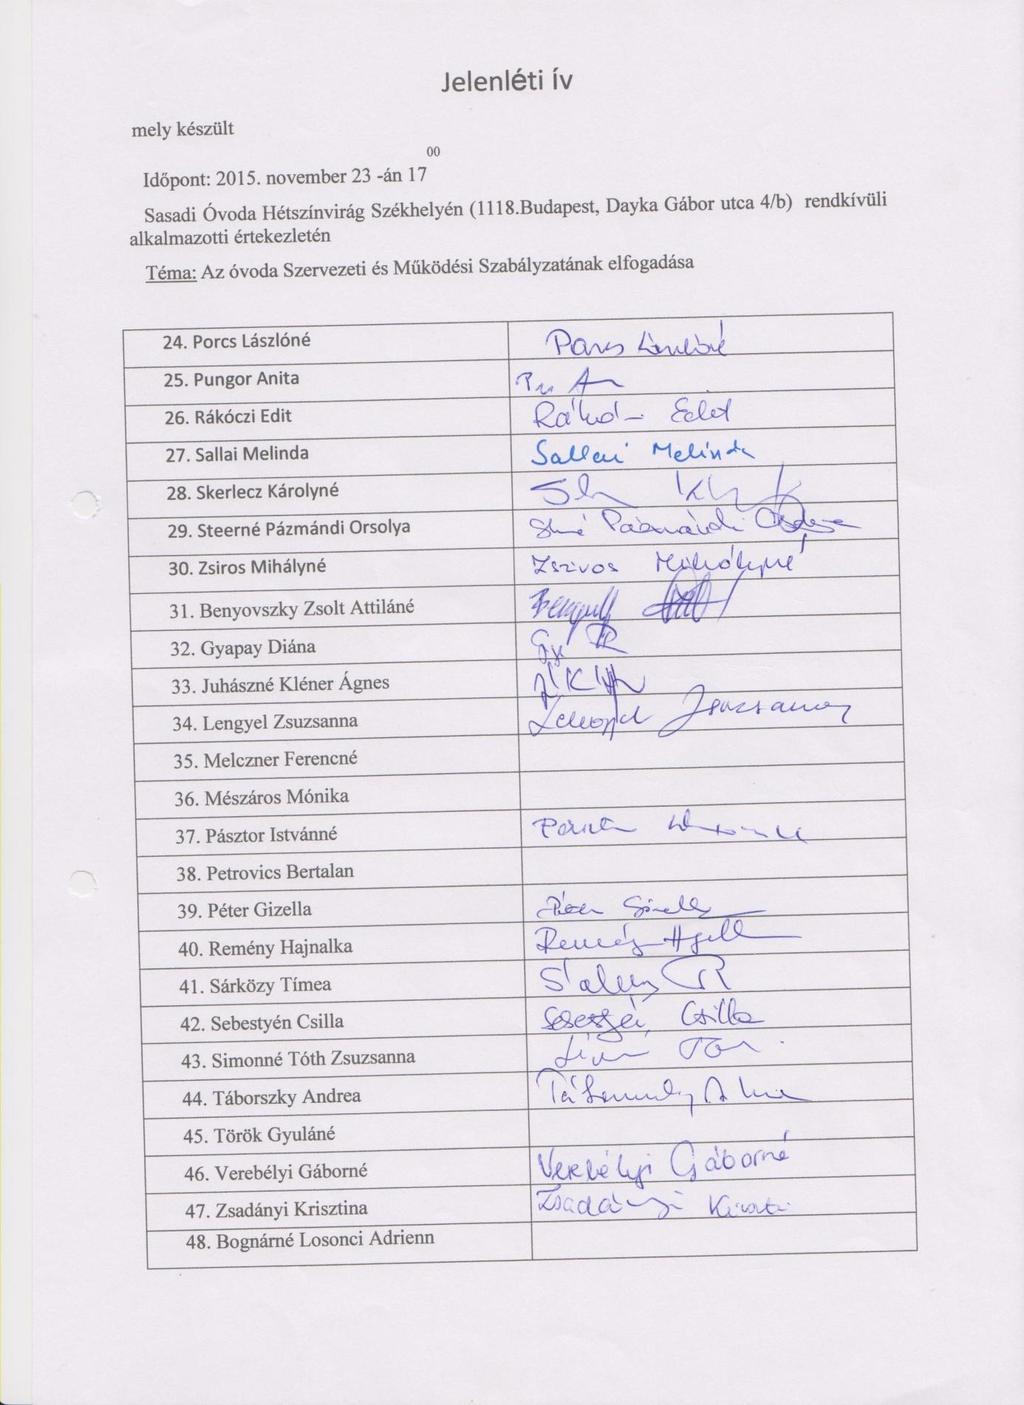 Jelenléti ív
mely készült
Időpont: 2015. november 23 -án 17 00
Sasadi Óvoda Hétszínvirág Székhelyén (1118.Budapest, Dayka Gábor utca 4/b) rendkívüli
alkalmazotti értekezletén
Téma: Az óvoda Szervezeti és Működési Szabályzatának elfogadása
24. Porcs Lászlóné
25. Pungor Anita
26. Rákóczi Edit
27. Sallai Melinda Sallai Melinda
28. Skerlecz Károlyné
29. Steerné Pázmándi Orsolya
30. Zsiros Mihályné Zsiros Mihályné
31. Benyovszky Zsolt Attiláné
32. Gyapay Diána
33. Juhászné Kléner Ágnes
34. Lengyel Zsuzsanna Lengyel Zsuzsanna
35. Melczner Ferencné
36. Mészáros Mónika
37. Pásztor Istvánné
38. Petrovics Bertalan
39. Péter Gizella Péter Gizella
40. Remény Hajnalka
41. Sárközy Tímea
42. Sebestyén Csilla Csilla
43. Simonné Tóth Zsuzsanna
44. Táborszky Andrea
45. Török Gyuláné
46. Verebélyi Gáborné Verebélyi Gáborné
47. Zsadányi Krisztina Zsadányi
48. Bognárné Losonci Adrienn